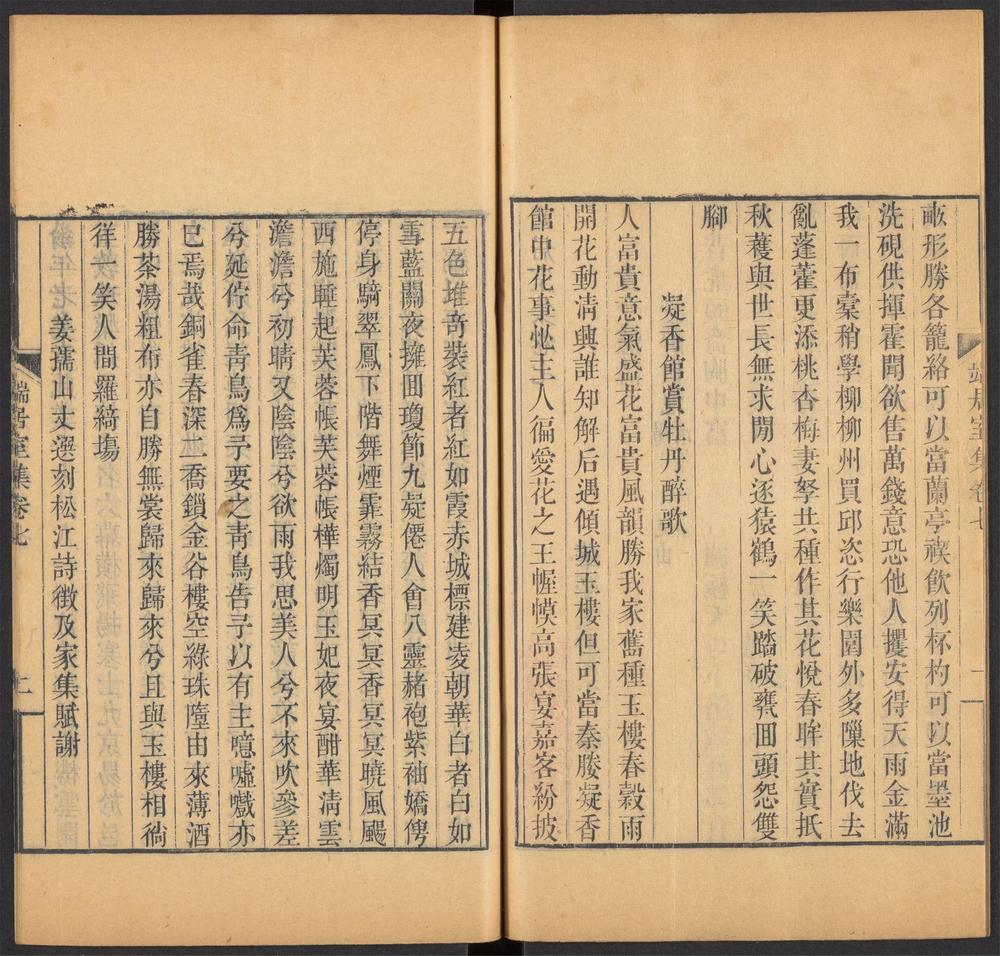 畝形勝各籠絡可以當蘭亭禊飲列杯杓可以當墨池
洗硯供揮霍聞欲售萬錢意恐他人攫安得天雨金滿
我一布橐稍學柳柳州買邱恣行樂圍外多隟地伐去
亂蓬藋更添桃杏梅妻孥共種作其花悅春眸其實抵
秋穫與世長無求閒心逐猿鶴一笑踏破甕囬頭怨雙
腳
凝香館賞牡丹醉歌
人富貴意氣盛花富貴風韻勝我家舊種玉樓春穀雨
開花動清興誰知解后遇傾城玉樓但可當秦媵凝香
館中花事怭主人徧愛花之王幄幙高張宴嘉客紛披
五色堆奇裝紅者紅如霞赤城標建凌朝華白者白如
雪藍關夜擁囬瓊節九疑僊人會八靈赭袍紫袖嬌俜
停身騎翠鳳下階舞煙霏霧結香冥冥香冥冥曉風颺
西施睡起芙蓉帳芙蓉帳樺燭明玉妃夜宴酣華清雲
澹澹兮初晴又陰陰兮欲雨我思美人兮不來吹參差
兮延佇命青鳥爲予要之青鳥告予以有主噫嘘嚱亦
已焉哉銅雀春深二喬鎖金谷樓空綠珠墮由來薄酒
勝茶湯粗布亦自勝無裳歸來歸來兮且與玉樓相徜
徉一笑人間羅綺塲
姜孺山丈選刻松江詩徵及家集賦謝
端居室集卷七